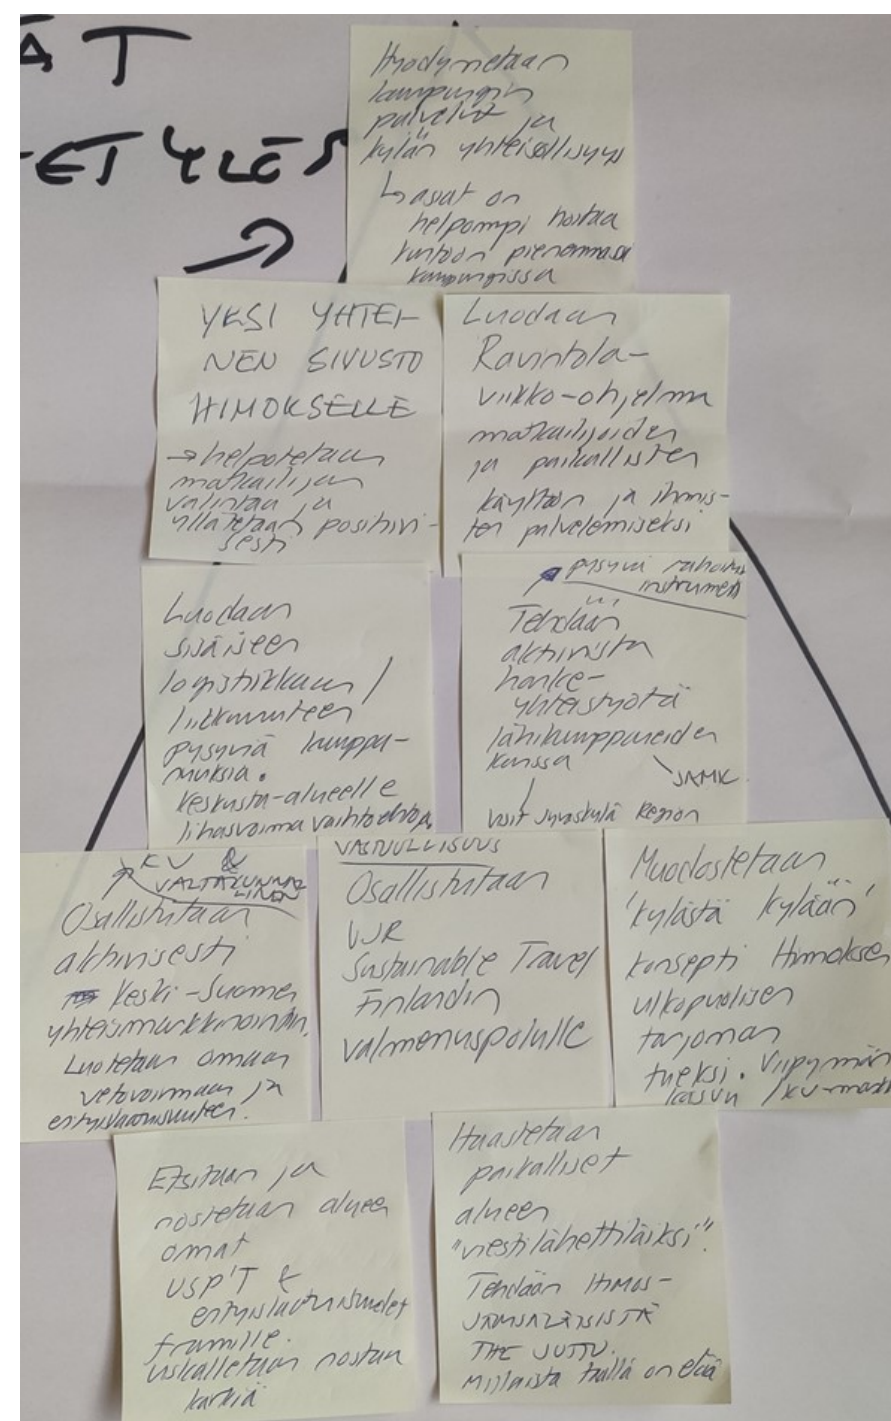 ÄT
ET YLÖS
Hyödynnetään
kaupungin
palvelut ja
kylän yhteisöllisyys
↳ asiat on
helpompi hoitaa
kuntoon pienemmässä
kaupungissa
YKSI YHTEI-
NEN SIVUSTO
HIMOKSELLE
→ helpotetaan
matkailijan
valintaa ja
yllätetään positiivi-
sesti
Luodaan
Ravintola-
viikko-ohjelma
matkailijoiden
ja paikallisten
käyttöön ja ihmis-
ten palvelemiseksi
Luodaan
sisäiseen
logistiikkaan /
liikkumiseen
pysyviä kumppa-
nuuksia.
Keskusta-alueelle
lihasvoima vaihtoehtoja
pysyvä rahoitus
instrumentti
Tehdään
aktiivista
hanke-
yhteistyötä
lähikumppaneiden
kanssa
JAMK
Visit Jyväskylä Region
KV &
VALTAKUNNAL
LINEN
Osallistutaan
aktiivisesti
Keski-Suomen
yhteismarkkinointiin.
Luotetaan omaan
vetovoimaan ja
erityislaatuisuuteen.
VASTUULLISUUS
Osallistutaan
VJR
Sustainable Travel
Finlandin
valmennuspolulle
Muodostetaan
'kylästä kylään'
konsepti Himoksen
ulkopuolisen
tarjoman
tueksi. Viipymän
kasvu / KV-markk
Etsitään ja
nostetaan alueen
omat
USP'T &
erityislaatuisuudet
framille.
Uskalletaan nostaa
kärkiä
Haastetaan
paikalliset
alueen
"viestilähettiläiksi".
Tehdään HIMOS-
JÄMSÄLÄISISTÄ
THE JUTTU.
Millaista täällä on elää